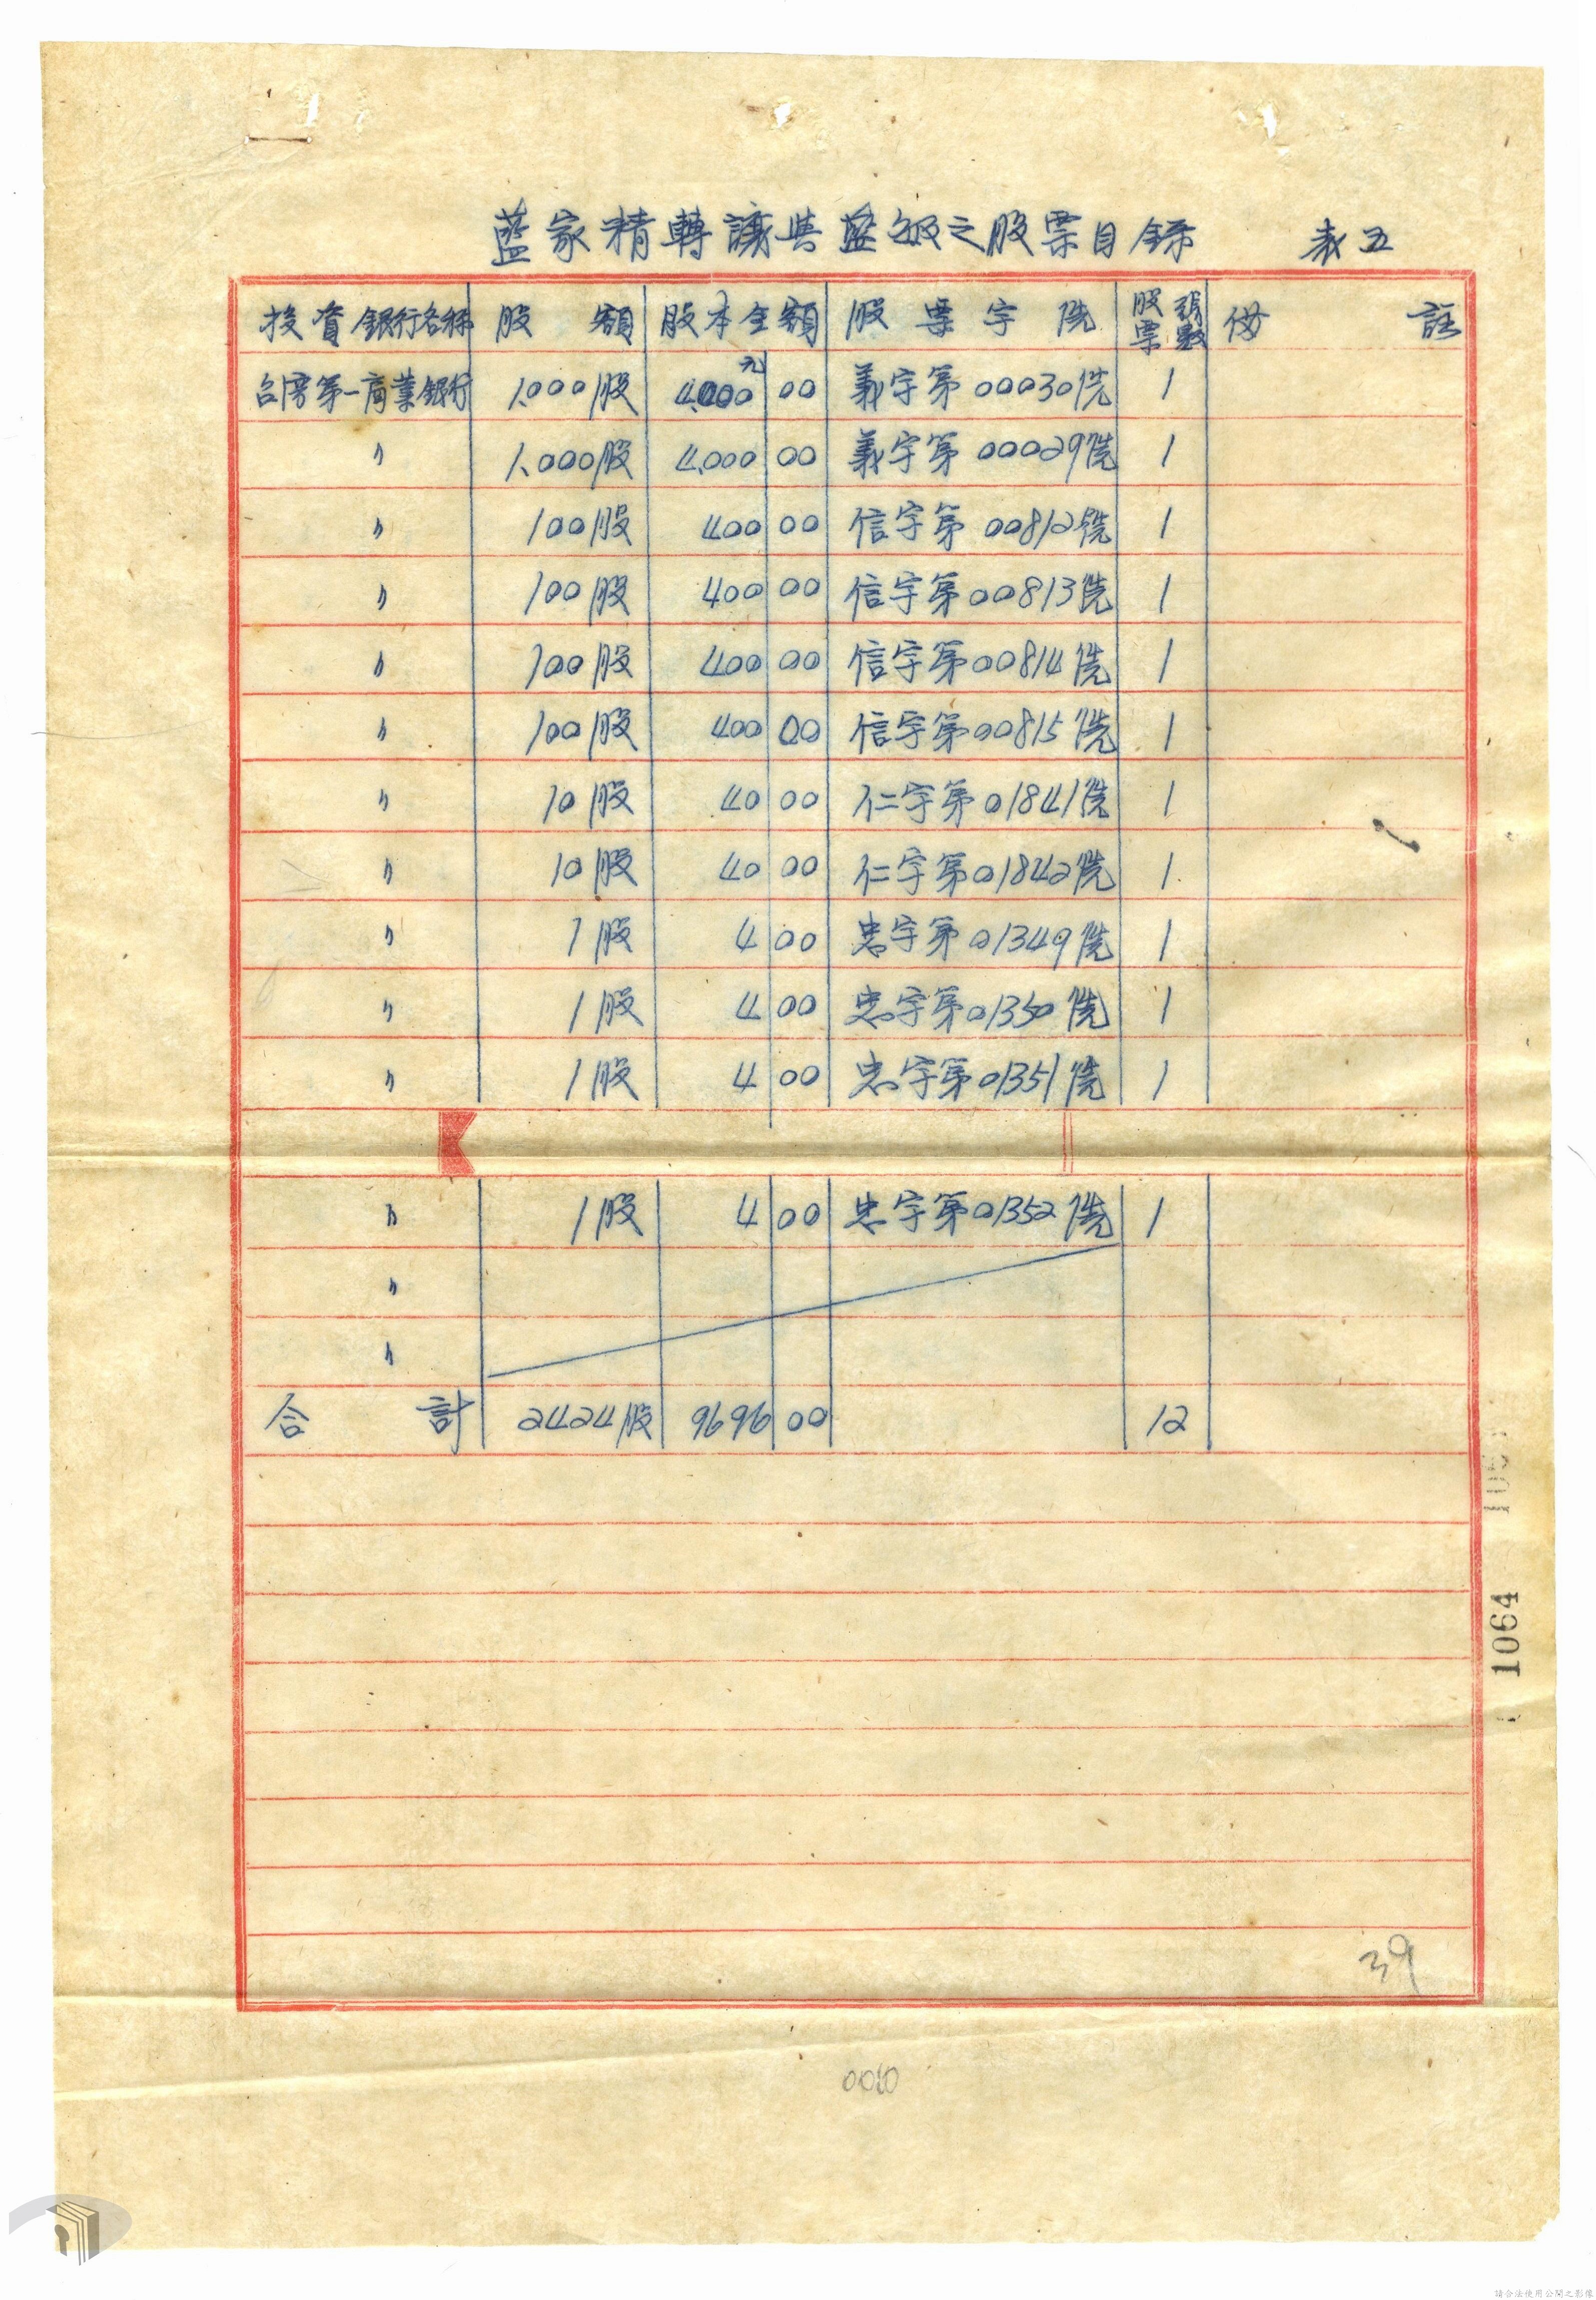 藍家精轉讓與藍敏之股票目錄 表五
投資銀行名称 股額 股本金額 股票字號 股票張數 備註
元
台湾第一商業銀行 1,000股 4,000 00 義字第00030號 1
〃 1,000股 4,000 00 義字第00029號 1
〃 100股 400 00 信字第00812號 1
〃 100股 400 00 信字第00813號 1
〃 100股 400 00 信字第00814號 1
〃 100股 400 00 信字第00815號 1
〃 10股 40 00 仁字第01841號 1
〃 10股 40 00 仁字第01842號 1
〃 1股 4 00 忠字第01349號 1
〃 1股 4 00 忠字第01350號 1
〃 1股 4 00 忠字第01351號 1
〃 1股 4 00 忠字第01352號 1
〃
〃
合計 2424股 9696 00 12
1064
39
0010
請合法使用公開之影像